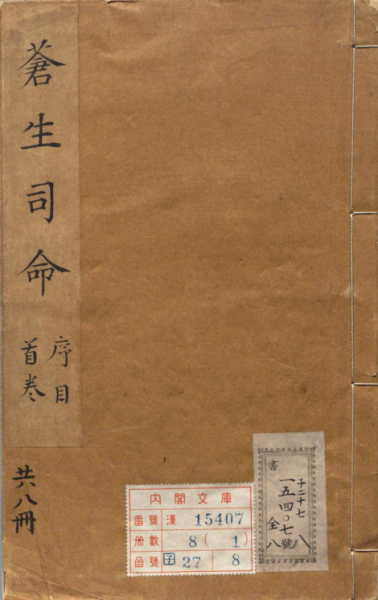 蒼生司命
序目
首卷
共八冊
書
子二十七
一五四〇七號
全八
八
內閣文庫
番號 漢 15407
冊數 8(1)
函號 子 27 8